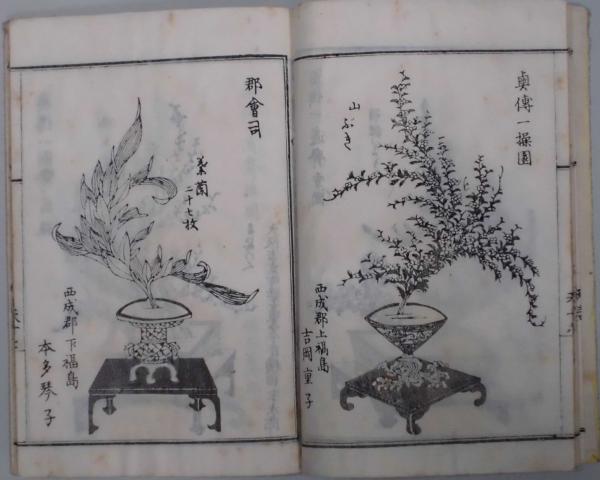 奥傳一操園
山ぶき
西成郡上福島
吉岡重子
郡會司
葉蘭
二十七枚
西成郡下福島
本多琴子